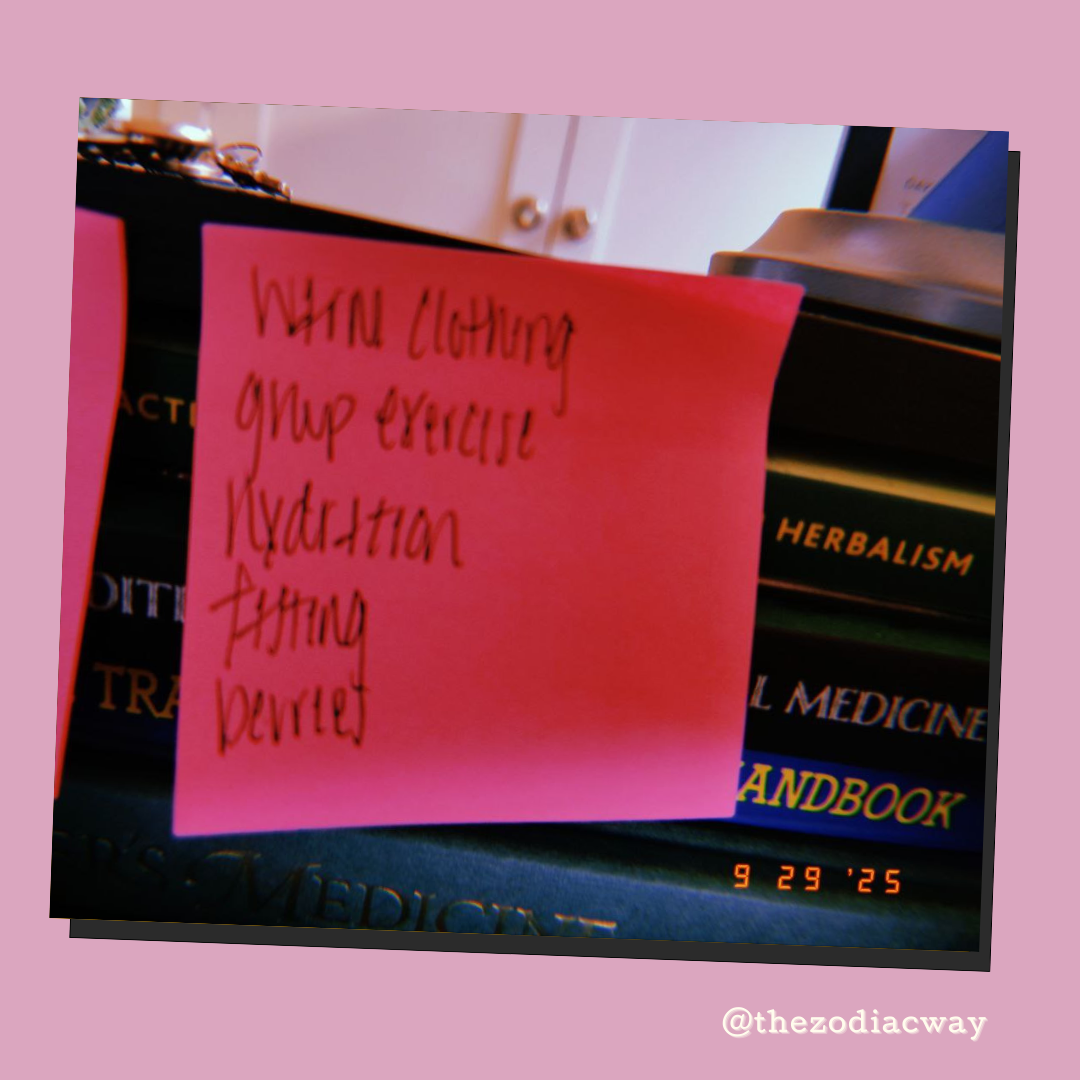 warm clothing
group exercise
hydration
fasting
berries
ACTI
HERBALISM
DITI
L MEDICINE
TRA
ANDBOOK
ER'S MEDICINE
9 29 '25
@thezodiacway